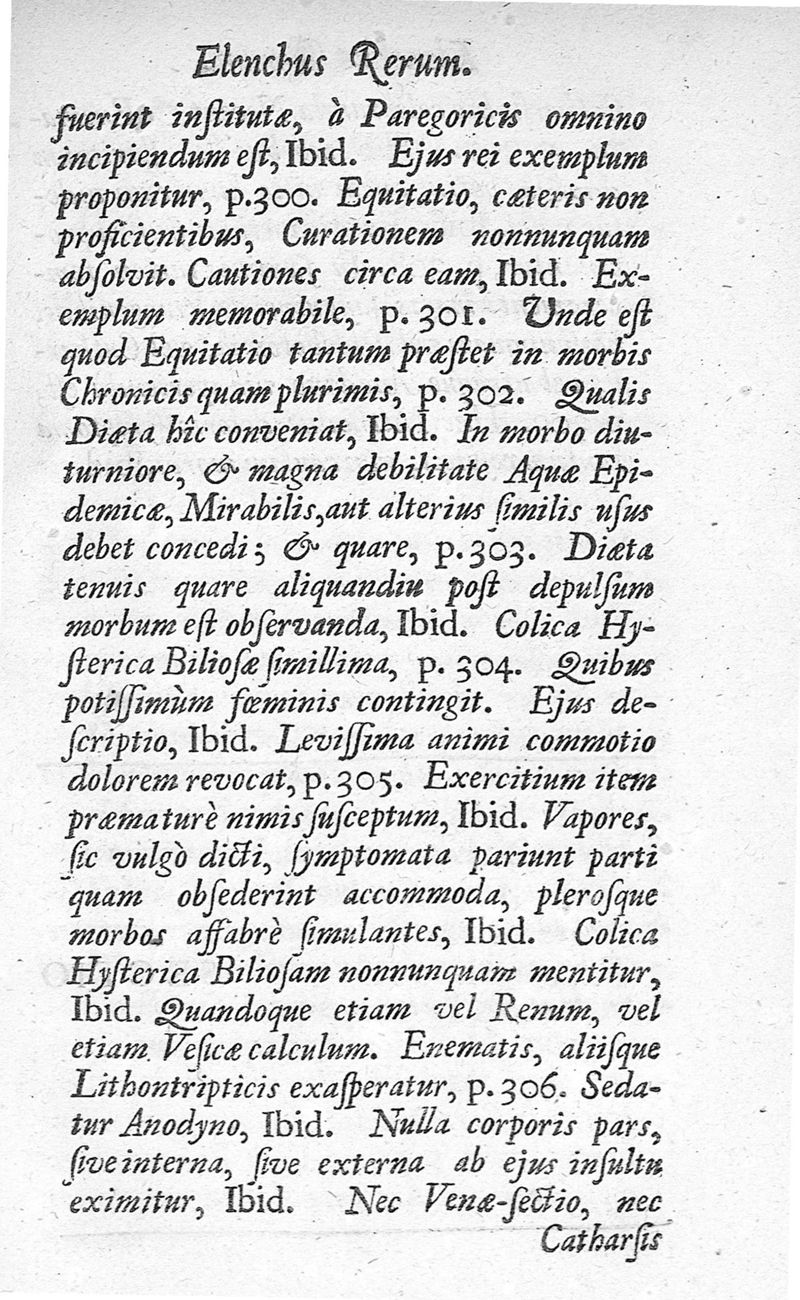 Elenchus Rerum.
fuerint inſtitutæ, à Paregoricis omnino
incipiendum eſt, Ibid. Ejus rei exemplum
proponitur, p.300. Equitatio, cæteris non
proficientibus, Curationem nonnunquam
abſolvit. Cautiones circa eam, Ibid. Ex-
emplum memorabile, p. 301. Unde eſt
quod Equitatio tantum præſtet in morbis
Chronicis quam plurimis, p. 302. Qualis
Diæta hîc conveniat, Ibid. In morbo diu-
turniore, & magna debilitate Aquæ Epi-
demicæ, Mirabilis, aut alterius ſimilis uſus
debet concedi; & quare, p.303. Diæta
tenuis quare aliquandiu poſt depulſum
morbum eſt obſervanda, Ibid. Colica Hy-
ſterica Bilioſæ ſimillima, p. 304. Quibus
potiſſimùm fœminis contingit. Ejus de-
ſcriptio, Ibid. Leviſſima animi commotio
dolorem revocat, p.305. Exercitium item
præmaturè nimis ſuſceptum, Ibid. Vapores,
ſic vulgò dicti, ſymptomata pariunt parti
quam obſederint accommoda, pleroſque
morbos affabrè ſimulantes, Ibid. Colica
Hyſterica Bilioſam nonnunquam mentitur,
Ibid. Quandoque etiam vel Renum, vel
etiam Veſicæ calculum. Enematis, aliiſque
Lithontripticis exaſperatur, p.306. Seda-
tur Anodyno, Ibid. Nulla corporis pars,
ſive interna, ſive externa ab ejus inſultu
eximitur, Ibid. Nec Venæ-ſectio, nec
Catharſis